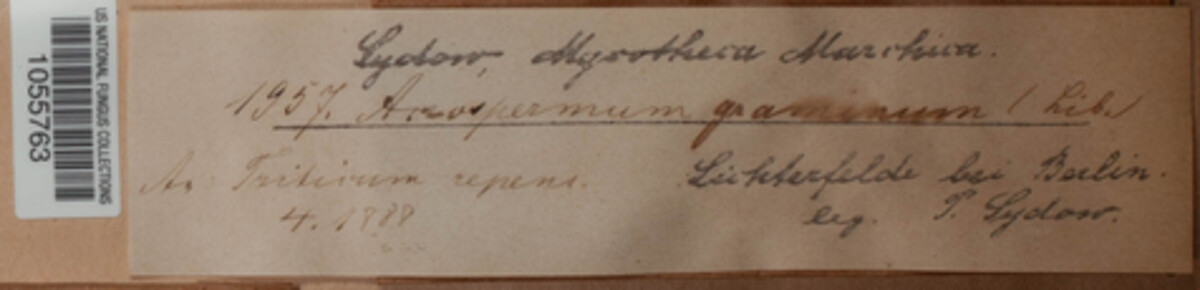 US NATIONAL FUNGUS COLLECTIONS
1055763
Sydow, Mycotheca Marchica.
1957. Acrospermum graminum (Lib.)
An: Triticum repens. Lichterfelde bei Berlin.
4. 1888 leg. P. Sydow.